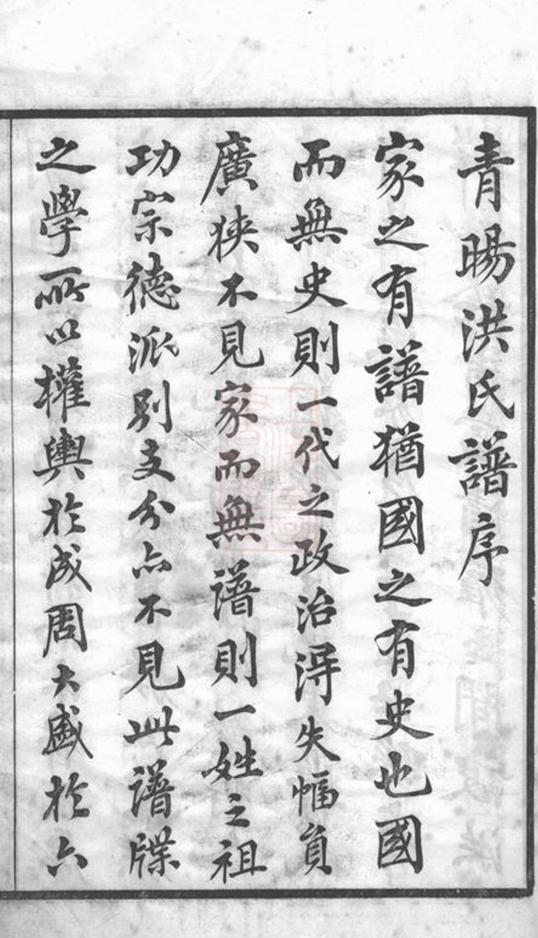 青暘洪氏譜序
家之有譜猶國之有史也國
而無史則一代之政治得失幅員
廣狹不見家而無譜則一姓之祖
功宗德派别支分亦不見此譜牒
之學所以權輿於成周大盛於六